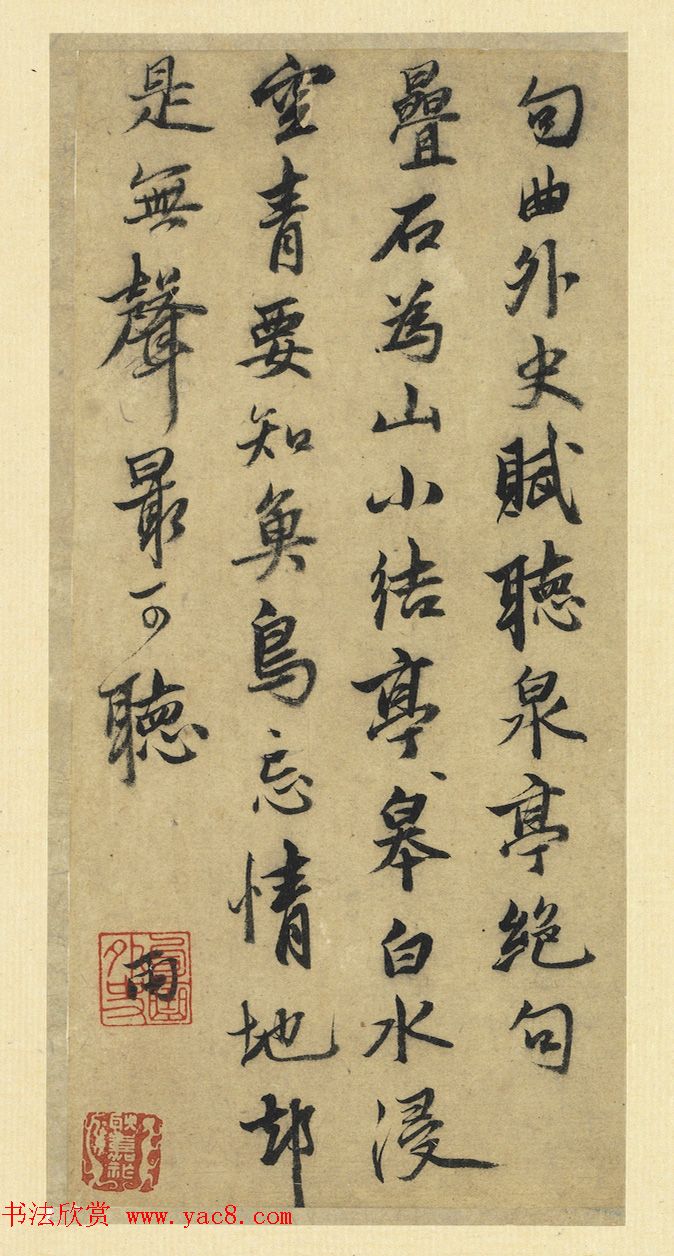 句曲外史賦聽泉亭絕句
疊石為山小結亭亭皋白水浸
空青要知魚鳥忘情地却
是無聲最可聽
雨
书法欣赏 www.yac8.com